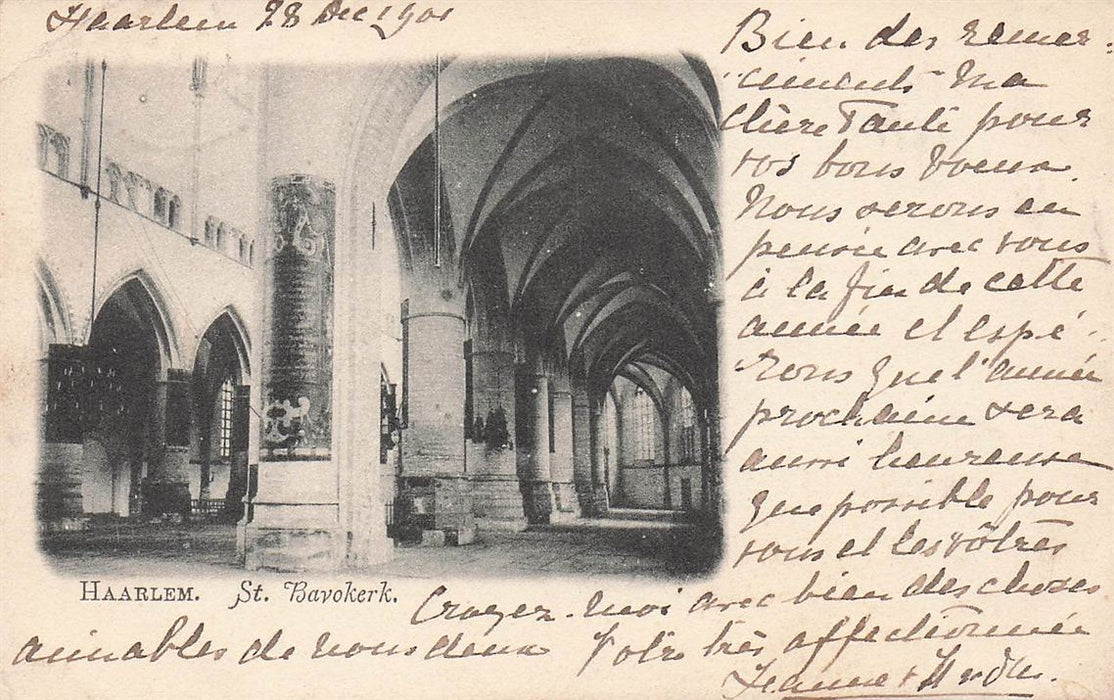 Haarlem 28 Dec 1901
Bien des remer-
ciments ma
chère Tante pour
vos bons voeux.
Nous serons en
pensée avec vous
à la fin de cette
année et espé-
rons que l'année
prochaine sera
aussi heureuse
que possible pour
vous et les vôtres
HAARLEM. St. Bavokerk.
Croyez-moi avec bien des choses
aimables de nous deux Votre très affectionnée
Jeanne +